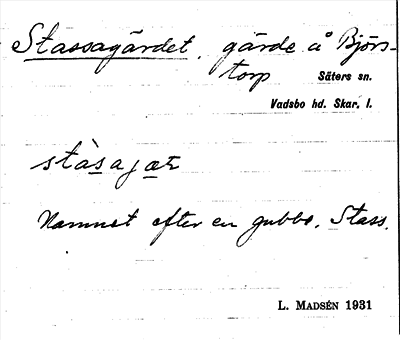 Stassagärdet, gärde å Björs-
torp
Säters sn.
Vadsbo hd. Skar. l.
stàsajæṛ
Namnet efter en gubbe, Stass.
L. MADSÉN 1931